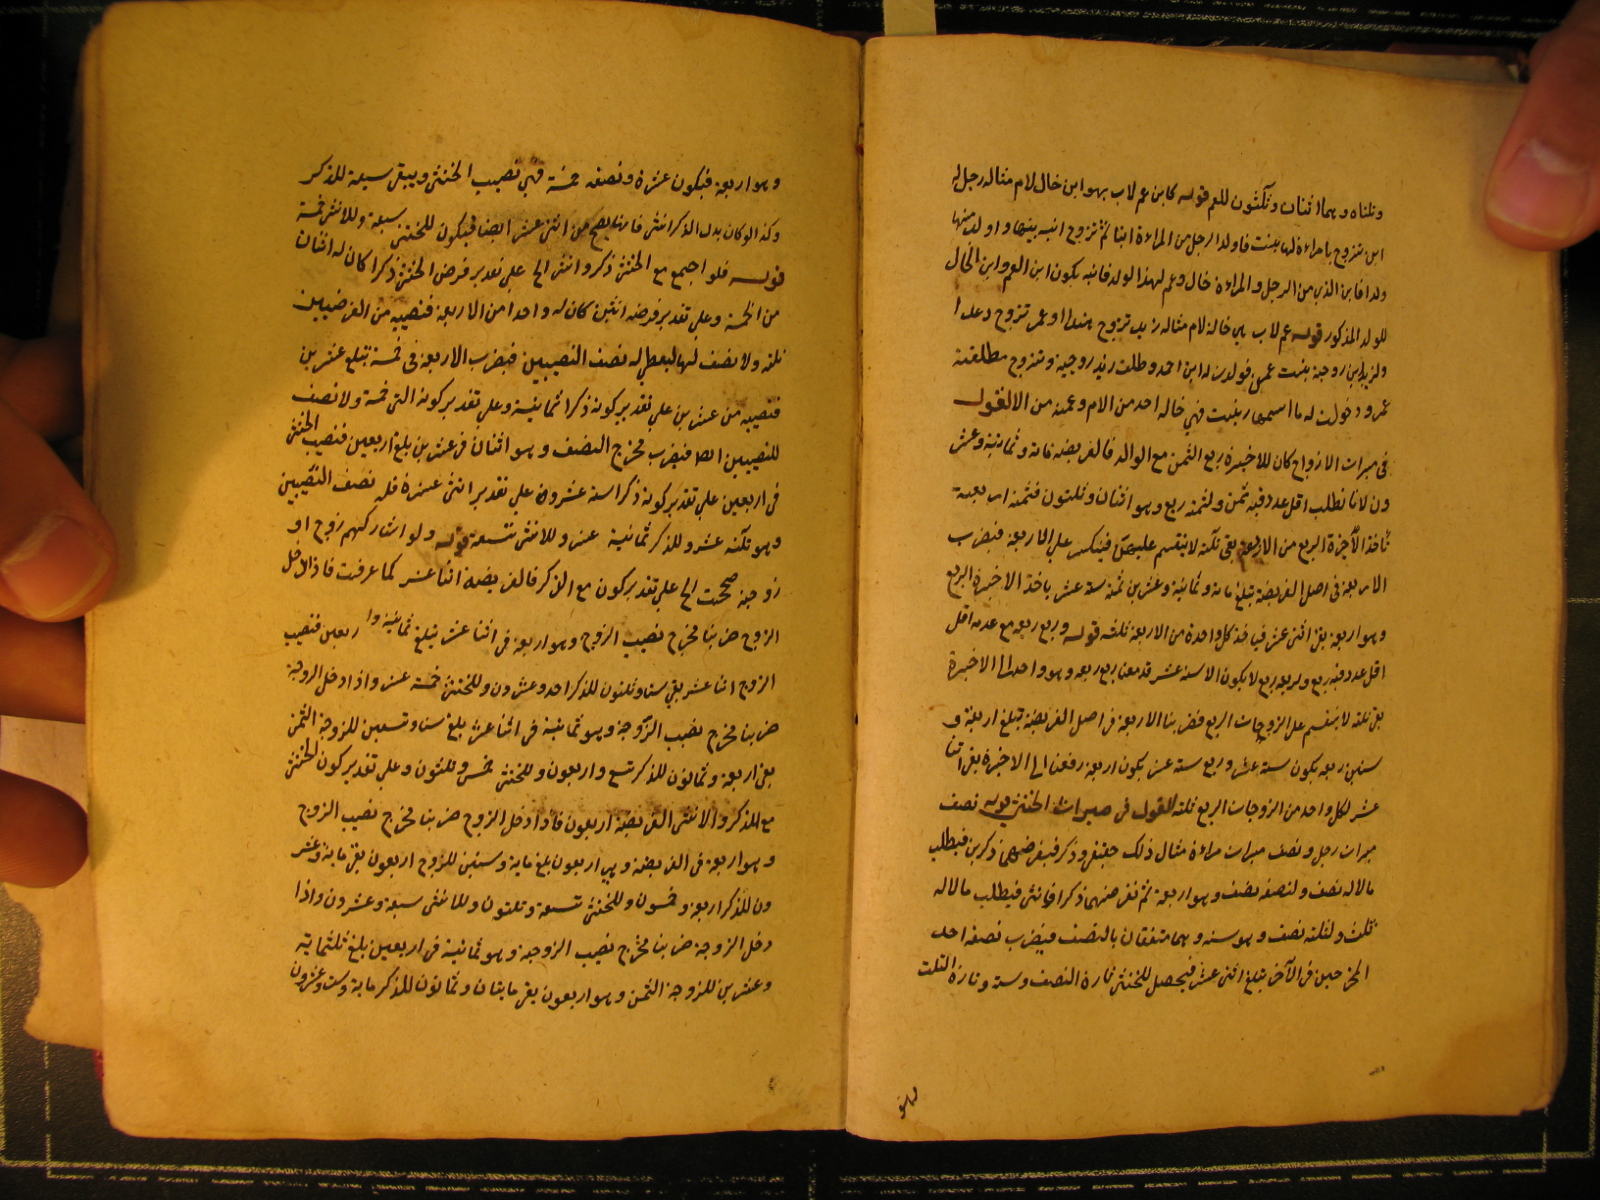 وثلثاه وهما اثنان وثلثون للعم قوله كابن عم لاب هو ابن خال لام مثاله رجل له
ابن تزوج بامراءة لها بنت فاولد الرجل من المراءة ابنا ثم تزوج ابنه بنتها واولد منها
ولدا فابن الذي من الرجل والمراءة خال وعم لهذا الولد فابنه يكون ابن العم وابن الخال
للولد المذكور قوله عم لاب هي خالة لام مثاله زيد تزوج هندا وعمر تزوج دعدا
ولزيد من زوجة بنت عمر فولدت له ابن احمد وطلق زيد زوجته وتزوج مطلقة
عمرو فولدت له ما اسمها زينب فهي خالة احمد من الام وعمته من الاب القول
في ميراث الازواج كان للاخيرة ربع الثمن مع الولد فالفريضة مائة وثمانية وعشر
ون لانا نطلب اقل عدد فيه ثمن ولثمنه ربع وهو اثنان وثلثون فثمنه اربعة
تاخذ الاخيرة الربع من الاربعة بقي ثلثة لا ينقسم عليهن فينكسر على الاربعة فيضرب
الاربعة في اصل الفريضة تبلغ مائة وثمانية وعشرين ثمنه ستة عشر ياخذ الاخيرة الربع
وهو اربعة بقي اثنى عشر فياخذ كل واحدة من الاربعة ثلثة قوله وربع ربعه مع عدمه اقل
اقل عدد فيه ربع ولربعه ربع لا يكون الا ستة عشر فدفعنا ربع ربعه وهو واحد الى الاخيرة
بقي ثلثة لا ينقسم على الزوجات الربع فضربنا الاربعة في اصل الفريضة تبلغ اربعة و
ستين ربعه يكون ستة عشر وربع ستة عشر يكون اربعة رفعنا الى الاخيرة بقي اثنا
عشر لكل واحد من الزوجات الربع ثلثة القول في ميراث الخنثى قوله نصف
ميراث رجل ونصف ميراث مراءة مثال ذلك خنثى وذكر فيفرضهما ذكرين فيطلب
مالا له نصف ولنصفه نصف وهو اربعة ثم نفرضهما ذكرا وانثى فيطلب مالا له
ثلث ولثلثه نصف وهو ستة وهما متفقان بالنصف فيضرب نصف احد
المخرجين في الآخر تبلغ اثنى عشر فيحصل للخنثى تارة النصف وستة وتارة الثلث
وهو
وهو اربعة فيكون عشرة ونصفه خمسة فهي نصيب الخنثى ويبقى سبعة للذكر
وكذا لو كان بدل الذكر انثى فانها يصح من اثنى عشر ايضا فيكون للخنثى سبعة وللانثى خمسة
قوله فلو اجتمع مع الخنثى ذكر وانثى الخ على تقدير فرض الخنثى ذكرا كان له اثنان
من الخمسة وعلى تقدير فرضه انثى كان له واحدا من الاربعة فنصيبه من الفرضيين
ثلثة ولا نصف لها ليعطى له نصف النصيبين فيضرب الاربعة في خمسة تبلغ عشرين
فنصيبه من عشرين على تقدير كونه ذكرا ثمانية وعلى تقدير كونه انثى خمسة ولا نصف
للنصيبين ايضا فيضرب مخرج النصف وهو اثنان في عشرين بلغ اربعين فنصيب الخنثى
في اربعين على تقدير كونه ذكرا ستة عشر وعلى تقدير انثى عشرة فله نصف النصيبين
وهو ثلثة عشر وللذكر ثمانية عشر وللانثى تسعة قوله ولو شاركهم زوج او
زوجة صحت الخ على تقدير كون مع الذكر فالفريضة اثنا عشر كما عرفت فاذا دخل
الزوج ضربنا مخرج نصيب الزوج وهو اربعة في اثنا عشر تبلغ ثمانية واربعين فنصيب
الزوج اثنا عشر بقي ستا وثلثون للذكر احد وعشرون وللخنثى خمسة عشر واذا دخل الزوجة
ضربنا مخرج نصيب الزوجة وهو ثمانية في اثنا عشر بلغ ستا وتسعين للزوجة الثمن
بقي اربعة وثمانون للذكر تسع واربعون وللخنثى خمس وثلثون وعلى تقدير كون الخنثى
مع الذكر والانثى الفريضة اربعون فاذا دخل الزوج ضربنا مخرج نصيب الزوج
وهو اربعة في الفريضة وهي اربعون بلغ مائة وستين للزوج اربعون بقي مائة وعشر
ون للذكر اربعة وخمسون وللخنثى تسعة وثلثون وللانثى سبعة وعشرون واذا
دخل الزوجة ضربنا مخرج نصيب الزوجة وهو ثمانية في اربعين بلغ ثلثمائة
وعشرين للزوجة الثمن وهو اربعون بقي مائتان وثمانون للذكر مائة وست وعشرون